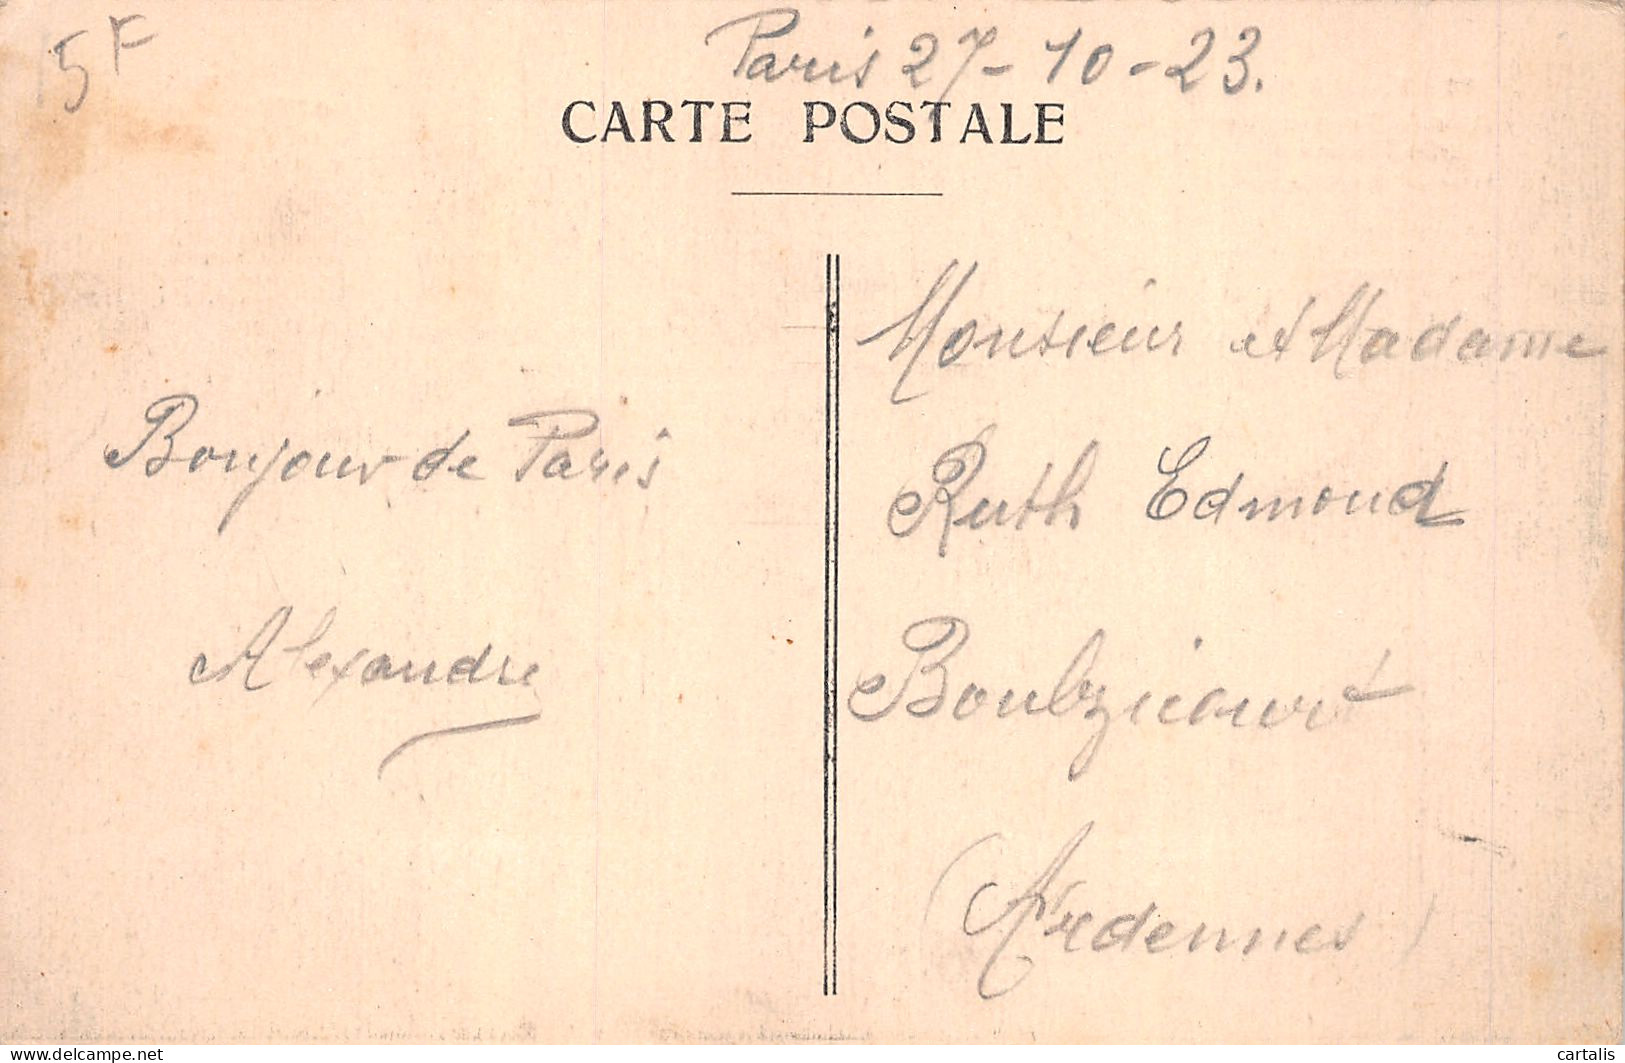 5F
Paris 27-10-23.
CARTE POSTALE
Bonjour de Paris
Alexandre
Monsieur et Madame
Ruth Edmond
Boulzicourt
(Ardennes)
delcampe.net
cartalis